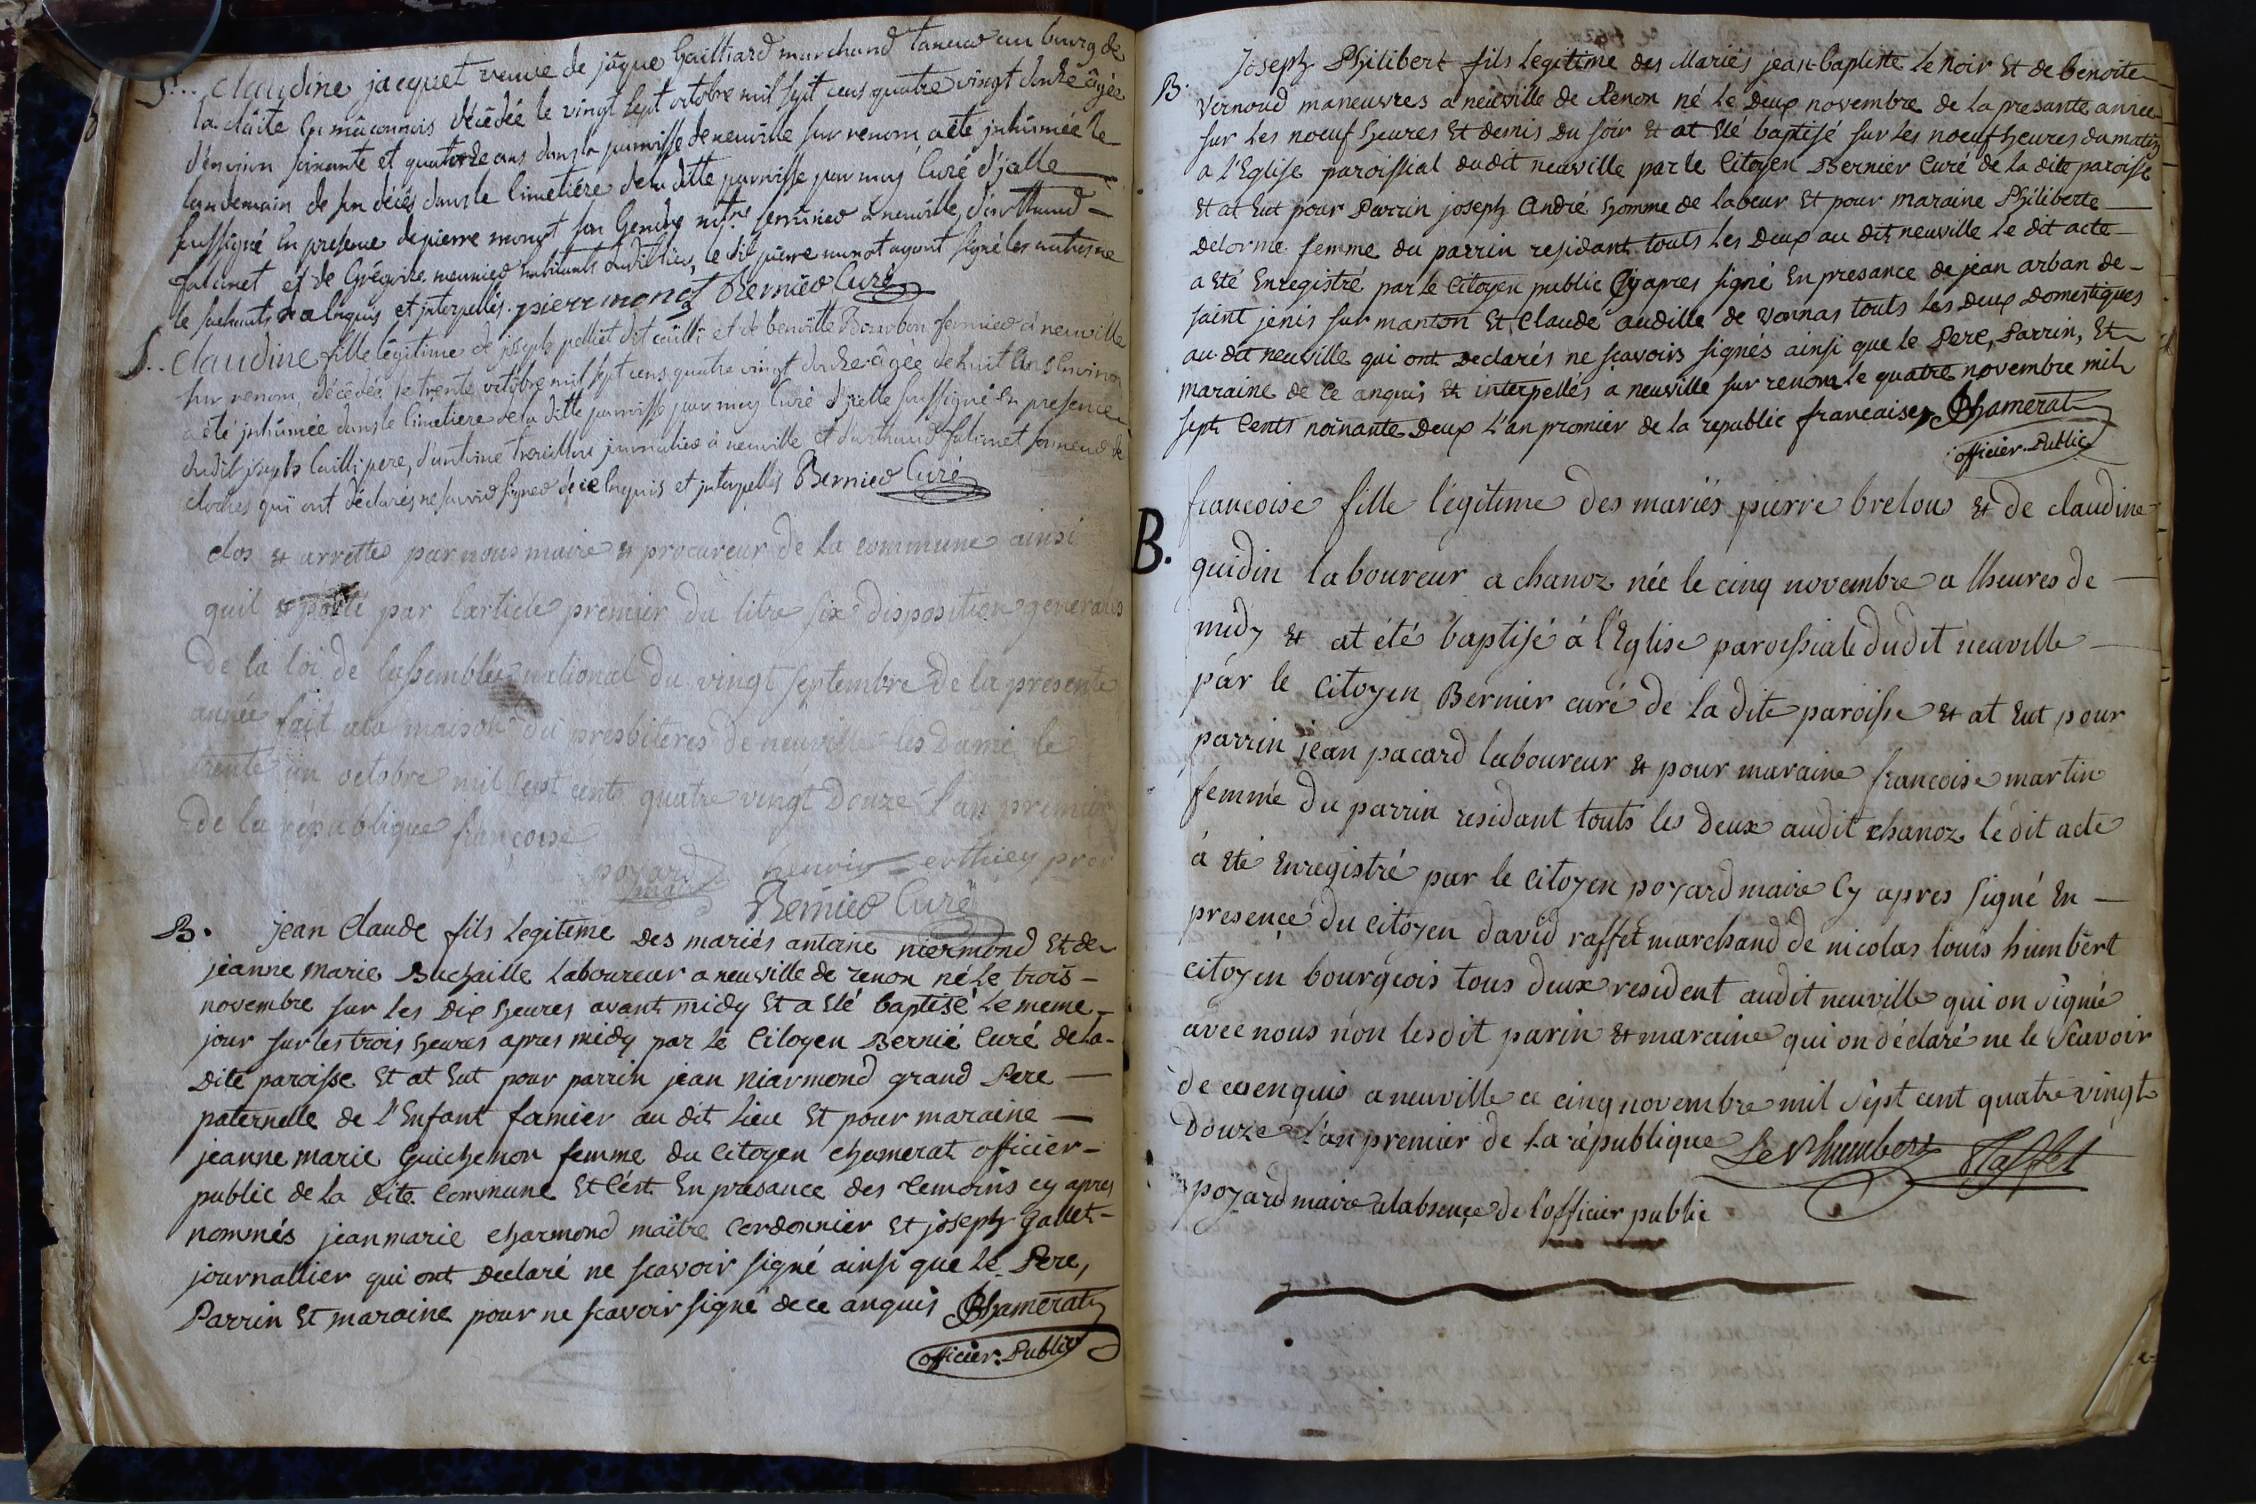 S... claudine jacquet veuve de jâque Gailliard marchand taneur au bourg de
la clâite en mâconnois décédée le vingt sept octobre mil sept cens quatre vingt douze âgée
d'environ soixante et quatorze ans dans la parroisse de neuville sur renom a été inhumée le
lendemain de son décès dans le cimetière de la ditte parroisse par moy Curé d'jcelle
soussigné en presence de pierre monot son Gendre serrurier à neuville, d'arthaud
falconet et de Grégoire meunier habitants dudit lieu, le dit pierre monot ayant signé les autres ne
le sachants de ce enquis et interpellés. pierr monot Bernier Curé
S.. claudine fille légitime de joseph pelliet dit cailli et de benoitte Bourbon fermier à neuville
sur renom, décédée le trente octobre mil sept cens quatre vingt douze âgée de huit ans environ
a été inhumée dans le cimetiere de la ditte parroisse par moy Curé d'jcelle soussigné en presence
dudit joseph Cailli pere, d'antoine journalier à neuville et d'arthaud falconet sonneur de
cloches qui ont déclarés ne savoir signer de ce enquis et interpellés Bernier Curé
clos & arretté par nous maire & procureur de la commune ainsi
quil & porté par l'article premier du livre six disposition generales
de la loi de lassemblée national du vingt septembre de la presente
année fait a la maison du presbiteres de neuville les Dame le
trente un octobre mil sept cents quatre vingt Douze l'an premier
de la république françoise
poyard maire
Bernier Curé
B. jean Claude fils Legitime des mariés antoine niermond Et de
jeanne marie Buchaille Laboureur a neuville de renon né Le trois
novembre sur Les Dix heures avant midy Et a Eté baptisé Le meme
jour sur les trois heures apres midy par Le Citoyen Bernié Curé de La
Dite paroisse Et at Eut pour parrin jean niarmond grand Pere
paternelle de l'Enfant famier au dit Lieu Et pour maraine
jeanne marie Guichenon femme du Citoyen chamerat officier
public de La Dite Commune Et C'est En presance des temoins cy apres
nommés jeanmarie charmond maitre Cordonnier Et joseph Gallet
journallier qui ont Declaré ne scavoir signé ainsi que Le Pere,
Parrin Et maraine pour ne scavoir signé de ce anquis Chamerat
officier. Public
B. Joseph Philibert fils Legitime des Mariés jean-baptiste Le Noir Et de benoite
Vernoud maneuvres a neuville de Renon né Le Deux novembre de la presante annee
sur Les noeuf heures Et demis Du soir Et at Eté baptisé sur Les noeuf heures du matin
a l'Eglise paroissial dudit neuville par le Citoyen Bernier Curé de la dite paroisse
Et at Eut pour Parrin joseph André homme de labeur Et pour maraine Philiberte
Delorme femme du parrin residant touts Les Deux au dit neuville Le dit acte
a Eté Enregistré par Le Citoyen public Cy apres signé En presance de jean arban de
saint jenis sur manton Et Claude audille de Vonnas touts Les Deux Domestiques
au dit neuville qui ont Declarés ne scavoirs signés ainsi que le Pere, Parrin, Et
maraine de Ce anquis Et interpellés a neuville sur renom Le quatre novembre mil
sept Cents noinante Deux L'an promier de la republic francaise, Chamerat
officier. Public
B. francoise fille légitime des mariés pierre brelous & de claudine
guidin laboureur a chanoz née le cinq novembre a lheures de
midy & at été baptisé á l'Eglise paroissiale dudit neuville
par le citoyen Bernier curé de la dite paroisse & at Eut pour
parrin jean pacard laboureur & pour maraine francoise martin
femme du parrin residant touts les deux audit chanoz le dit acte
á Eté Enregistré par le citoyen poyard maire Cy apres signé En
presençe du citoyen david raffet marchand de nicolas louis humbert
citoyen bourgeois tous deux resident audit neuville qui on signé
avec nous non lesdit parin & maraine qui on déclaré ne le scavoir
de ce enquis a neuville ce cinq novembre mil sept cent quatre vingt
Douze l'an premier de la république LeN humbert Raffet
poyard maire a labsençe de l'officier public